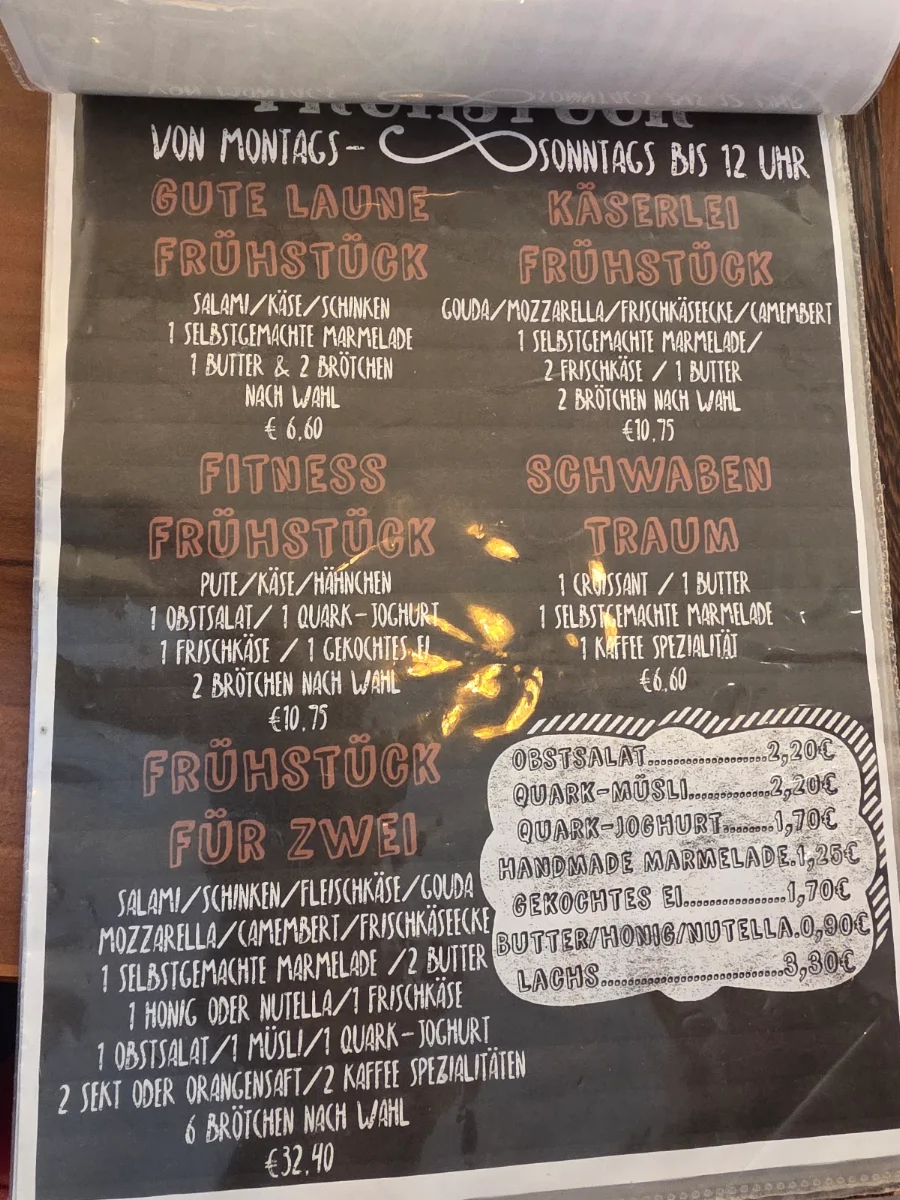 FRÜHSTÜCK
VON MONTAGS- SONNTAGS BIS 12 UHR
GUTE LAUNE
FRÜHSTÜCK
SALAMI/KÄSE/SCHINKEN
1 SELBSTGEMACHTE MARMELADE
1 BUTTER & 2 BRÖTCHEN
NACH WAHL
€ 6,60
KÄSERLEI
FRÜHSTÜCK
GOUDA/MOZZARELLA/FRISCHKÄSEECKE/CAMEMBERT
1 SELBSTGEMACHTE MARMELADE/
2 FRISCHKÄSE / 1 BUTTER
2 BRÖTCHEN NACH WAHL
€10,75
FITNESS
FRÜHSTÜCK
PUTE/KÄSE/HÄHNCHEN
1 OBSTSALAT/ 1 QUARK-JOGHURT
1 FRISCHKÄSE / 1 GEKOCHTES EI
2 BRÖTCHEN NACH WAHL
€10,75
SCHWABEN
TRAUM
1 CROISSANT / 1 BUTTER
1 SELBSTGEMACHTE MARMELADE
1 KAFFEE SPEZIALITÄT
€6,60
FRÜHSTÜCK
FÜR ZWEI
SALAMI/SCHINKEN/FLEISCHKÄSE/GOUDA
MOZZARELLA/CAMEMBERT/FRISCHKÄSEECKE
1 SELBSTGEMACHTE MARMELADE /2 BUTTER
1 HONIG ODER NUTELLA/1 FRISCHKÄSE
1 OBSTSALAT/1 MÜSLI/1 QUARK-JOGHURT
2 SEKT ODER ORANGENSAFT/2 KAFFEE SPEZIALITÄTEN
6 BRÖTCHEN NACH WAHL
€32,40
OBSTSALAT....................2,20€
QUARK-MÜSLI..............2,20€
QUARK-JOGHURT.........1,70€
HANDMADE MARMELADE.1,25€
GEKOCHTES EI..................1,70€
BUTTER/HONIG/NUTELLA.0,90€
LACHS................................3,30€